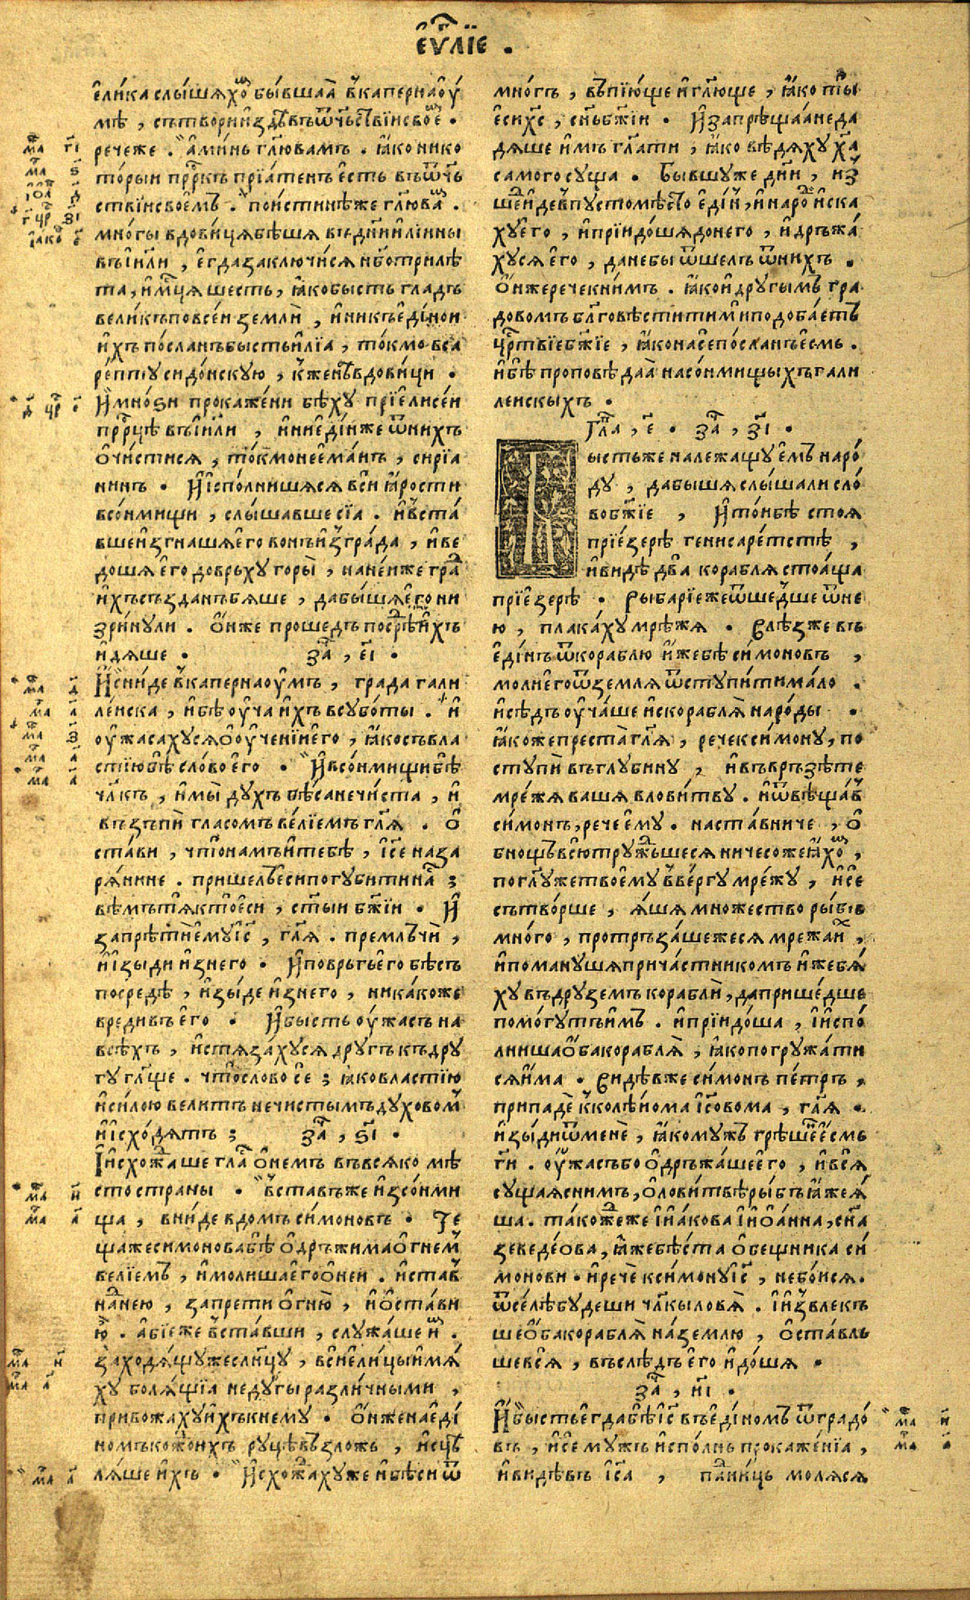 еѵⷢ҇лїе .
е҆ли́ка слы́шяхоⷨ бы́вшаѧ в̾каперна́оу
мѣ , сътвори́ и҆ здѣ въѿч҇ьствїи свое҆мъ .
рече же . а҆ми́нь гл҃ю вамъ . ꙗ҆́ко нико
то́рыи прⷪ҇ркъ прїа́тенъ е҆́сть въѿч҇ь
ствїи свое҆́мъ . пои́стинѣ же гл҃ю ваⷨ
мно́гы вдови́ця бѣ́шя въ дн҃и и҆лїи́ны
въ і҆и҃ли , е҆гда̀ заключи́ся нб҃о три лѣ
та , и҆ мцⷭ҇я шесть , ꙗ҆́ко бы́сть гла́дъ
вели́къ по все́и землѝ , и҆ ни къ е҆ди́нои
и҆́хъ по́сланъ бы́сть и҆лїа̀ , то́кмо в̾ са
ре́птꙋ сидо́нскую , к̾ женѣ̀ вдови́ци .
И҆ мно́ѕи прокаже́ни бѣ́хꙋ прїе҆лисе́и
прⷪ҇рцѣ въ і҆и҃ли , и҆ ни е҆ди́нже ѿни́хъ
ѻ҆чи́стися , то́кмо неема́нъ , сирїа
нинъ . И҆ и҆спо́лнишяся всѝ ꙗ҆́рости
в̾ со́нмищи , слы́шавше сїа̀ . и҆ в̾ста́
вше и҆згна́шя е҆го̀ во́нъ и҆з̾гра́да , и҆ ве
до́шя е҆го̀ до ве́рьхꙋ горы̀ , на не́иже граⷣ
и҆́хъ създа́нъ бя́ше , да бы́шя е҆го̀ ни
зри́нꙋли . Ѻ҆́нже проше́дъ посреⷣѣ и҆́хъ
и҆дя́ше . заⷱ҇ , е҃і .
И҆ сни́де в̾каперна́оумъ , гра́да гали
ле́иска , и҆ бѣ̀ оу҆ча̀ и҆́хъ в̾ сꙋбо́ты . и҆
оу҆жаса́хꙋся ѻ҆ оу҆че́нїи е҆го̀ , ꙗ҆́ко съ вла
стїю бѣ̀ сло́во е҆го̀ . И҆ в̾ со́нмищи бѣ̀
чл҃къ , и҆мы̀ дꙋ́хъ бѣ́са нечи́ста , и҆
възъпѝ гла́сомъ ве́лїемъ гл҃я . Ѻ҆
ста́ви , что̀ на́мъ и҆ тебѣ̀ , і҆с҃е наза
ря́нине . прише́лъ е҆сѝ погꙋби́ти на́съ ;
вѣ́мъ тя̀ кто̀ е҆сѝ , ст҃ы́и бж҃їи . И҆
запрѣтѝ е҆мꙋ̀ і҆с҃ , гл҃я . премлъчѝ ,
и҆ и҆зы́ди и҆знего̀ . И҆ пове́рьгъ е҆го̀ бѣ́съ
посредѣ̀ , и҆зы́де и҆знего̀ , ника́коже
вреди́въ е҆го̀ . И҆ бы́сть оу҆́жасъ на
всѣ́хъ , и҆ стяза́хꙋся дрꙋ́гъ къ дрꙋ
гꙋ гл҃ще . что̀ сло́во сѐ ; ꙗ҆́ко вла́стїю
и҆ си́лою вели́тъ нечи́стымъ дꙋ́ховомъ
и҆ и҆схо́дятъ ; заⷱ҇ , ѕ҃і .
И҆ и҆схожⷣа́ше гла́съ ѻ҆ не́мъ въ вся́ко мѣ́
сто страны̀ . в̾ста́въ же и҆з̾ со́нми
ща , вни́де в̾ до́мъ си́моновъ . Те
ща́ же си́монова бѣ̀ ѻ҆дръжи́ма ѻ҆гне́мъ
ве́лїемъ , и҆ моли́ша е҆го̀ ѻ҆ не́и . и҆ ста́въ
на́д̾ нею , запретѝ ѻ҆гню̀ , и҆ ѻ҆ста́ви
ю҆̀ . а҆́бїе же в̾ста́вши , слꙋжа́ше и҆́мъ .
Заходя́щꙋ же слн҃цꙋ , всѝ е҆ли́цы и҆мя́
хꙋ боля́щїа недꙋ́гы разли́чными ,
привожа́хꙋ и҆́хъ к̾ немꙋ̀ . Ѻ҆́нже на е҆ди́
номъ ко́жⷣо и҆́хъ рꙋ́цѣ възло́жь , и҆сцѣ
ля́ше и҆́хъ . И҆схожⷣа́хꙋ же и҆ бѣ́си ѿ
мно́гъ , въпїю́ще и҆ гл҃юще , ꙗ҆́ко ты̀
е҆сѝ хс҃ , сн҃ъ бж҃їи . И҆ запрѣща́а не да
дя́ше и҆́мъ гл҃ати , ꙗ҆́ко вѣ́дяхꙋ хⷭ҇а
самого̀ сꙋ́ща . Бы́вшꙋ же дн҃и , и҆з̾
ше́дъ и҆́де в̾ пꙋ́сто мѣ́сто е҆ди́нъ , и҆ наро́ди и҆ска́
хꙋ е҆го̀ , и҆ прїидо́шя до него̀ , и҆ дръжа́
хꙋся е҆го̀ , да не бы̀ ѿше́лъ ѿни́хъ .
Ѻ҆́нже рече к̾ ни́мъ . ꙗ҆́ко и҆ дрꙋгы́мъ гра
до́вомъ бл҃говѣсти́ти мѝ подоба́етъ
црⷭ҇твїе бж҃їе , ꙗ҆́ко на се по́сланъ е҆́смь .
и҆ бѣ̀ проповѣ́даа на со́нмищыхъ гали
ле́искыхъ .
Гла , е҃ . заⷱ҇ , з҃і .
Бы́сть же належа́щꙋ е҆мꙋ̀ наро́
дꙋ , да бы́шя слы́шали сло́
во бж҃їе , И҆ то́и бѣ̀ стоя̀
прїе́зерѣ генисаре́тстѣ ,
и҆ ви́дѣ два̀ корабля̀ стоа́ща
прїе́зерѣ . Рыба́рїе же ѿше́дше ѿне
ю̀ , плака́хꙋ мрѣ́жя . Влѣ́з же въ
е҆ди́нъ ѿкораблю̀ и҆́же бѣ̀ си́моновъ ,
молѝ е҆го̀ ѿземля̀ ѿстꙋпи́ти ма́ло .
и҆ сѣ́дъ оу҆ча́ше и҆скорабля̀ наро́ды .
ꙗ҆́коже преста̀ гл҃я , рече к̾ си́монꙋ , по
стꙋпѝ въ глꙋбинꙋ̀ , и҆ въвръзѣ́те
мре́жя ва́шя в̾ лови́твꙋ . и҆ ѿвѣща́въ
си́монъ , рече е҆мꙋ̀ . наста́вниче , ѻ҆
бно́щь всю̀ трꙋ́жⷣьшеся ничесо́же ꙗ҆́хоⷨ ,
по гл҃ꙋ же твое҆мꙋ̀ в̾ве́ргꙋ мре́жꙋ , и҆ се́
сътво́рше , я҆́шя мно́жество ры́бъ
мно́го , протръза́шежеся мре́жа и҆́хъ ,
и҆ помѧнꙋ́шя прича́стникомъ и҆́же бя́
хꙋ въ дрꙋ́земъ кораблѝ , да прише́дше
помо́гꙋтъ и҆́мъ . и҆ прїидо́ша , и҆ и҆спо́
лниша ѻ҆́ба корабля̀ , ꙗ҆́ко погрꙋжа́ти
ся и҆́ма . Видѣ́в же си́монъ пе́тръ ,
припадѐ к̾ колѣ́нома і҆сⷭ҇овома , гл҃я .
и҆зы́ди ѿменѐ , ꙗ҆́ко мꙋ́жъ грѣ́шенъ е҆́смь
гⷭ҇и . оу҆́жасъ бо ѻ҆дръжа́ше е҆го̀ , и҆ вся̀
сꙋ́щая сни́мъ , ѻ҆ лови́твѣ ры́бъ ꙗ҆́же я҆́
ша . та́коⷤже и҆ і҆а́кова и҆ і҆ѻа́нна , сн҃а
зеведе́ова , ꙗ҆́же бѣ́ста ѻ҆бе́щника си́
монови . и҆ речѐ к̾ си́монꙋ і҆с҃ , не бо́ися .
ѿсе́лѣ бꙋ́деши чл҃кы ловя̀ . И҆ и҆звле́къ
ше ѻ҆́ба корабля̀ на́ землю , ѻ҆ста́вль
ше вся̀ , въслѣ́дъ е҆го̀ и҆до́шя .
заⷱ҇ , и҃і .
И҆ бы́сть е҆гда̀ бѣ̀ і҆с҃ въ е҆ди́номъ ѿградо́
въ , и҆ се́ мꙋ́жъ и҆спо́лнь прокаже́нїа ,
и҆ ви́дѣвъ і҆с҃а , паⷣ ни́ць моля́ся